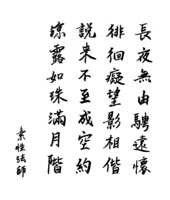 長夜無由騁遠懷
徘徊癡望影相偕
說来不至成空約
瓊露如珠滿月階
素性法師